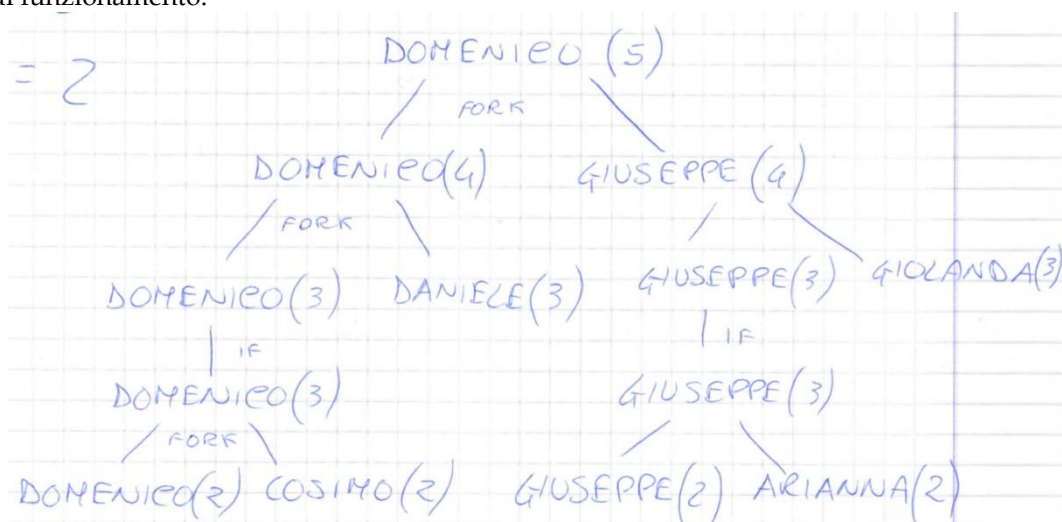 di funzionamento.
= 2
DOMENICO (5)
FORK
DOMENICO(4) GIUSEPPE (4)
FORK
DOMENICO(3) DANIELE(3) GIUSEPPE(3) GIOLANDA(3)
IF IF
DOMENICO(3) GIUSEPPE (3)
FORK
DOMENICO(2) COSIMO(2) GIUSEPPE(2) ARIANNA(2)